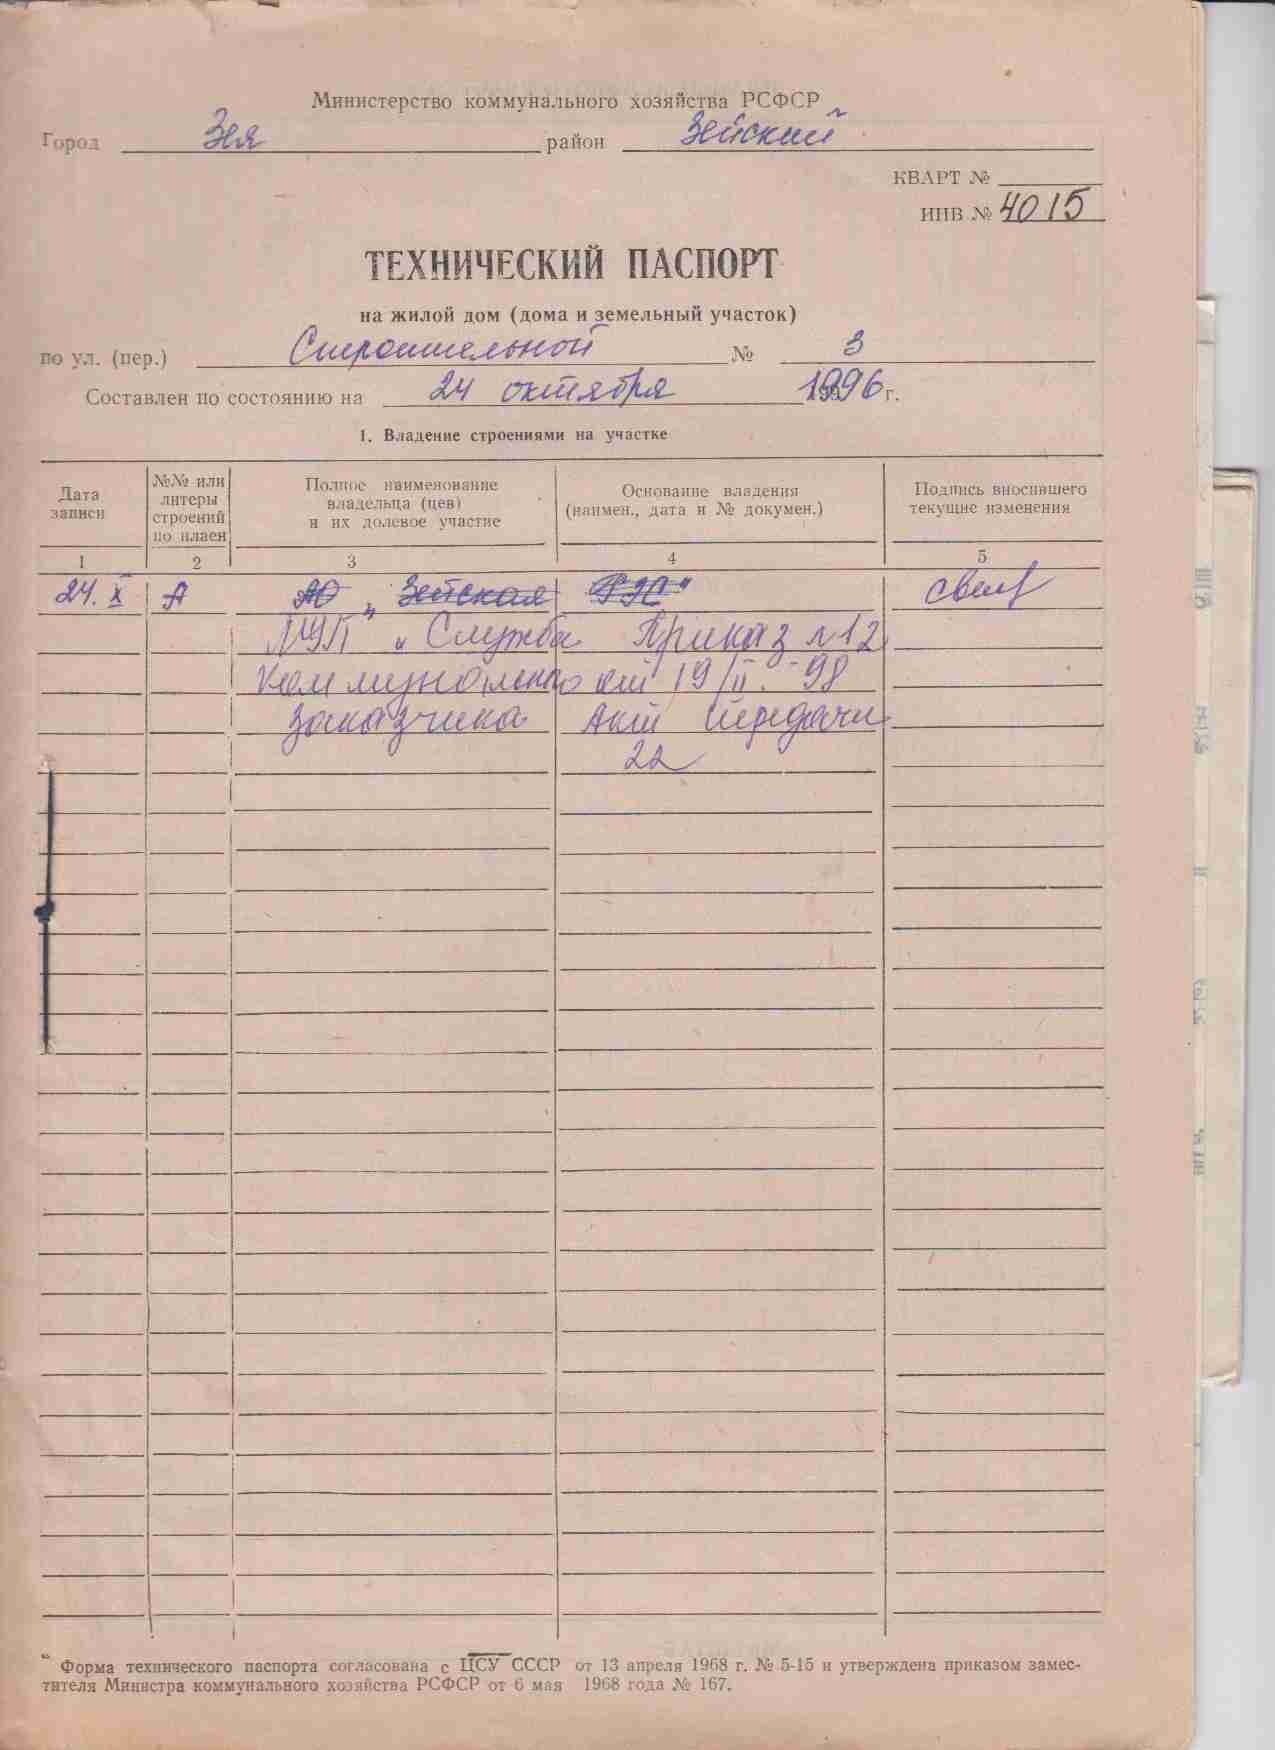 Министерство коммунального хозяйства РСФСР
Город Зея район Зейский
КВАРТ №
ИНВ № 4015
ТЕХНИЧЕСКИЙ ПАСПОРТ
на жилой дом (дома и земельный участок)
по ул. (пер.) Строительной № 3
Составлен по состоянию на 24 октября 1996 г.
1. Владение строениями на участке
Дата записи
№№ или литеры строений по плаен
Полное наименование владельца (цев) и их долевое участие
Основание владения (наимен., дата и № докумен.)
Подпись вносившего текущие изменения
1 2 3 4 5
24. X А АО „Зейская ГЭС"
МУП „Служба Приказ №12
Коммунального от 19/II.-98
заказчика Акт передачи
22
Форма технического паспорта согласована с ЦСУ СССР от 13 апреля 1968 г. № 5-15 и утверждена приказом замес-
тителя Министра коммунального хозяйства РСФСР от 6 мая 1968 года № 167.